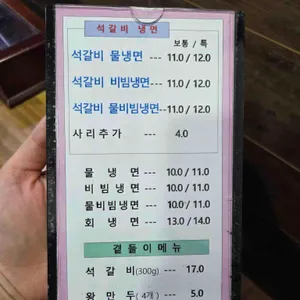 석갈비 냉면
보통 / 특
석갈비 물냉면 --- 11.0 / 12.0
석갈비 비빔냉면 --- 11.0 / 12.0
석갈비 물비빔냉면 --- 11.0 / 12.0
사리추가 --- 4.0
물 냉 면 --- 10.0 / 11.0
비 빔 냉 면 --- 10.0 / 11.0
물비빔냉면 --- 10.0 / 11.0
회 냉 면 --- 13.0 / 14.0
곁들이메뉴
석 갈 비(300g) --- 17.0
왕 만 두 ( 4개 ) --- 5.0